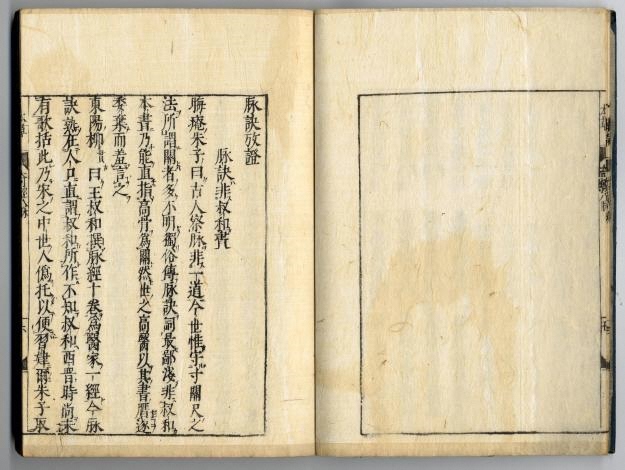 脉訣攷證
脉訣非叔和書
晦庵朱子曰古人察脉非一道今世惟守寸關尺之
法所謂關者多不明獨俗傳脉訣詞最鄙淺非叔和
本書乃能直指高骨爲關然世之高醫以其書贋遂
委棄而羞言之
東陽柳曰王叔和撰脉經十卷爲醫家一經今脉
訣熟在人口直謂叔和所作不知叔和西晋時尚未
有歌括此乃宋之中世人偽托以便習肄爾朱子取